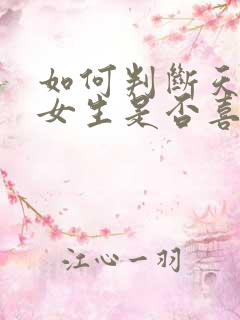 如何判斷天
女生是否喜
江心一羽